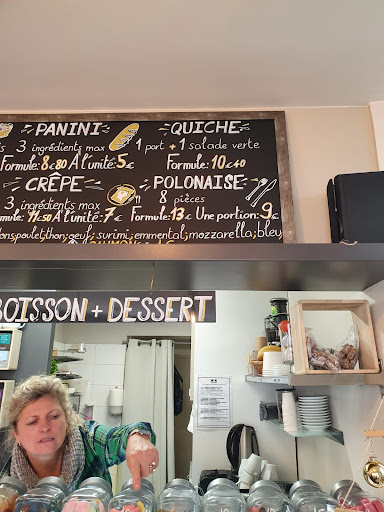 PANINI QUICHE
is 3 ingrédients max 1 port + 1 salade verte
Formule: 8€80 À l'unité: 5€ Formule: 10€40
CRÊPE POLONAISE
3 ingrédients max 8 pièces
mule: 11€50 À l'unité: 7€ Formule: 13€ Une portion: 9€
ons; poulet; thon; oeuf; surimi; emmental; mozzarella; bleu
BOISSON + DESSERT